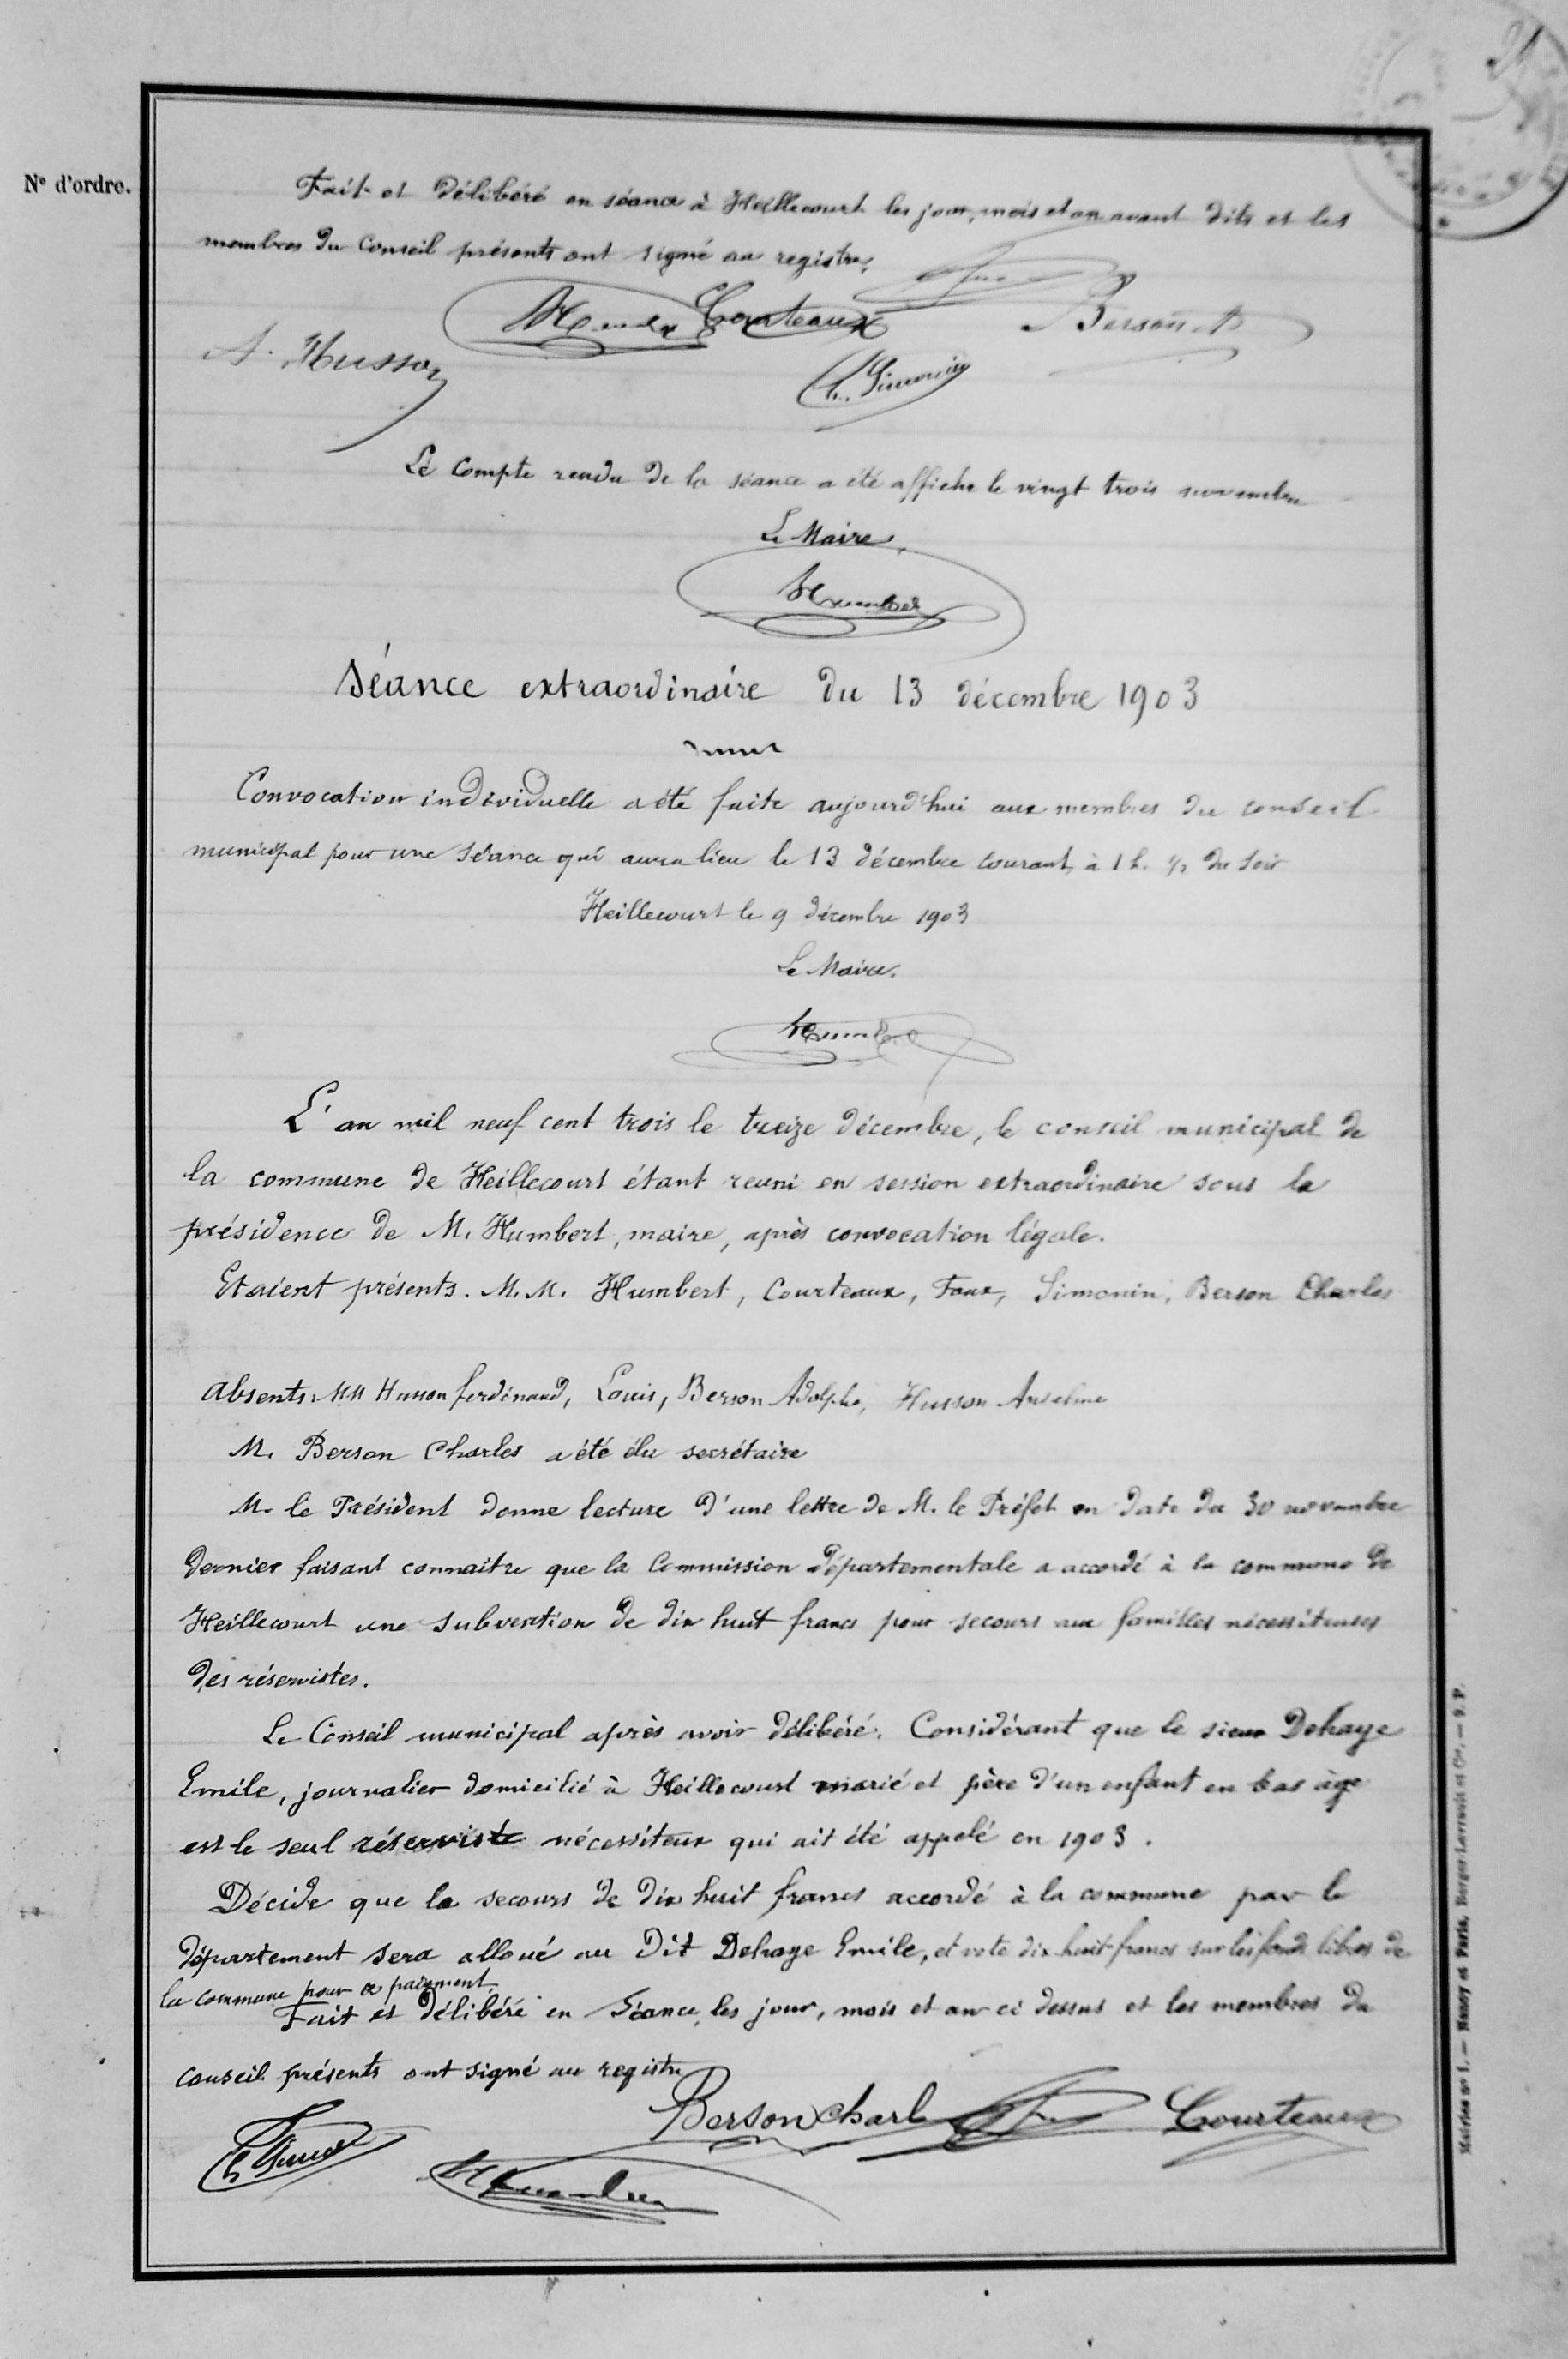 21
N° d'ordre.
Fait et Délibéré en séance à Heillecourt les jour, mois et an avant dits et les
membres du Conseil présents ont signé au registre.
Humbert Courteaux Berson A
A. Husson
C. Simonin
Le Compte rendu de la séance a été affiché le vingt trois novembre
Le Maire,
Humbert
Séance extraordinaire du 13 décembre 1903
Convocation individuelle a été faite aujourd'hui aux membres du conseil
municipal pour une séance qui aura lieu le 13 décembre courant à 1 h. 1/2 du soir
Heillecourt le 9 décembre 1903
Le Maire.
Humbert
L'an mil neuf cent trois le treize décembre, le conseil municipal de
la commune de Heillecourt étant reuni en session extraordinaire sous la
présidence de M. Humbert, maire, après convocation légale.
Etaient présents. M.M. Humbert, Courteaux, Faux, Simonin, Berson Charles
Absents. MM Husson ferdinand, Louis, Berson Adolphe, Husson Anselme
M. Berson Charles a été élu secrétaire
M. le Président donne lecture d'une lettre de M. le Préfet en date du 30 novembre
dernier faisant connaitre que la Commission départementale a accordé à la commune de
Heillecourt une subvention de dix huit francs pour secours aux familles nécessiteuses
des réservistes.
Le Conseil municipal après avoir délibéré. Considérant que le sieur Dehaye
Emile, journalier domicilié à Heillecourt marié et père d'un enfant en bas âge
est le seul réserviste nécessiteux qui ait été appelé en 1903.
Décide que le secours de dix huit francs accordé à la commune par le
département sera alloué au dit Dehaye Emile, et vote dix huit francs sur les fonds libres de
la commune pour ce paiement.
Fait et délibéré en Séance, les jour, mois et an ci dessus et les membres du
conseil présents ont signé au registre
Berson Charles Courteaux
C. Simonin
Humbert
Mairies n° 1. — Nancy et Paris, Berger-Levrault et Cie. — 9. P.